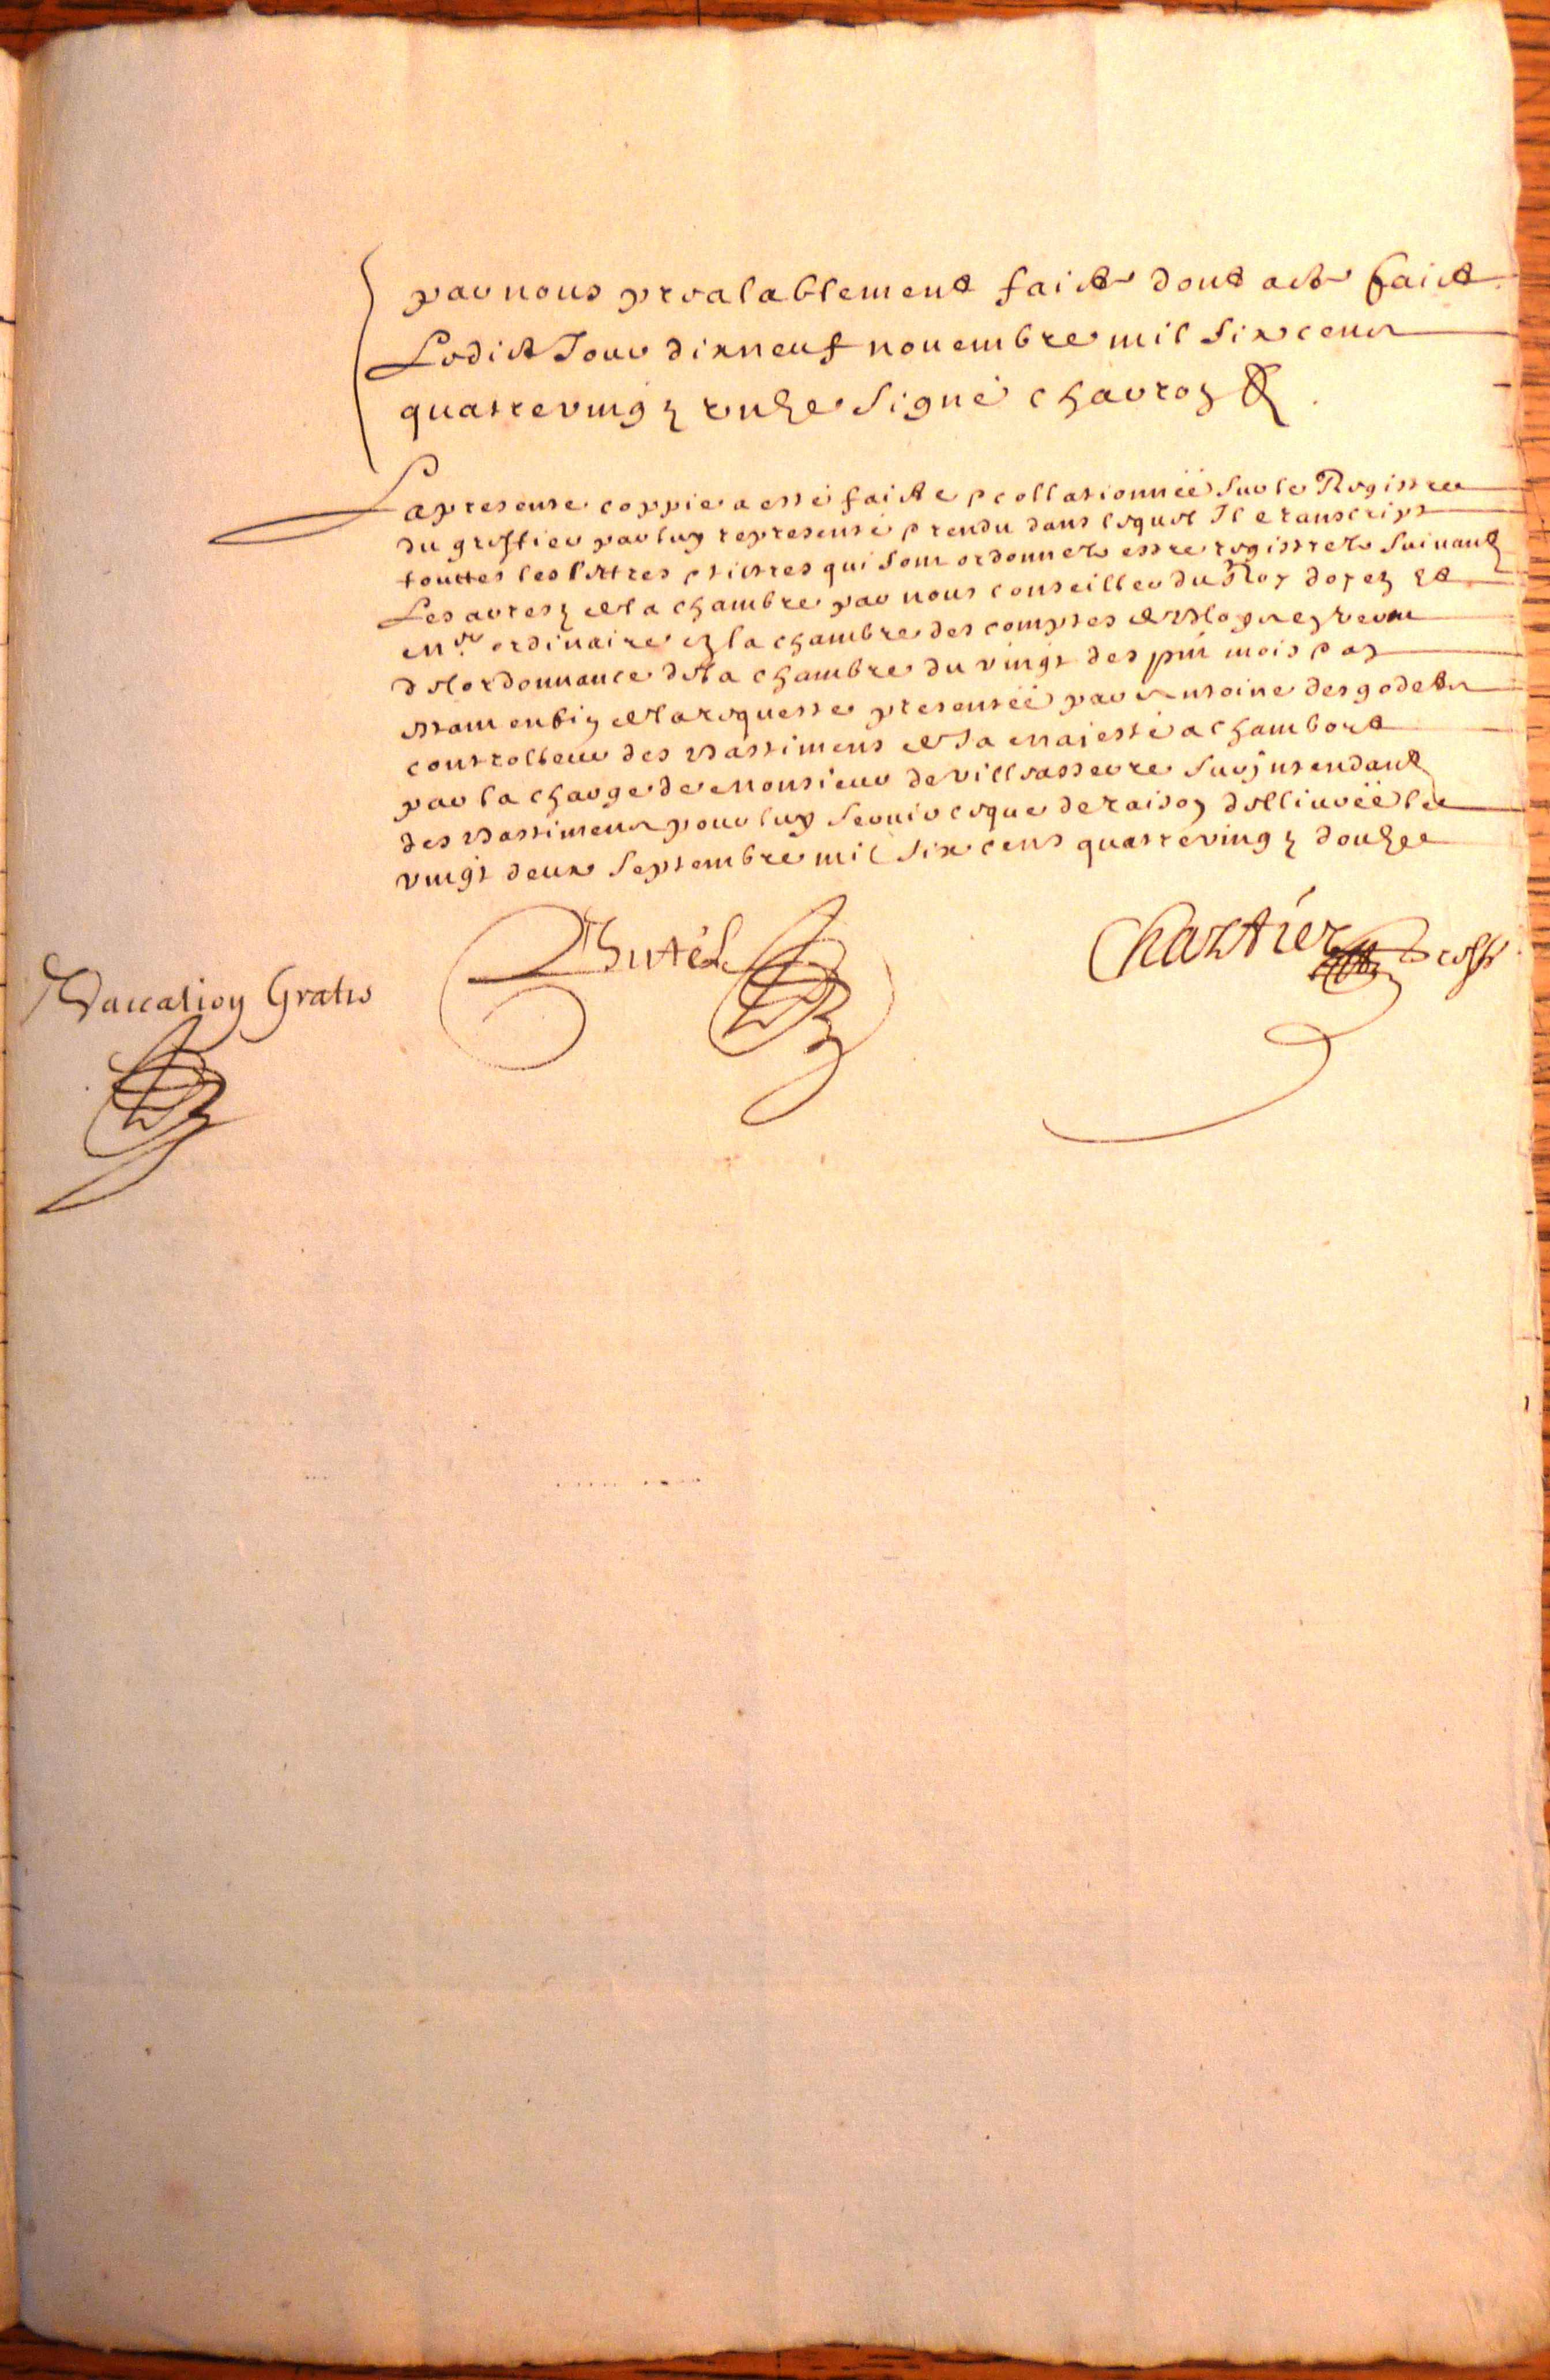 par nous prealablement faicte dont acte faict
Ledict Jour dixneuf novembre mil Six cens
quatrevingz unze Signé charron
La presente coppie a esté faicte et collationnée Sur le Registre
du greffier par luy representé et rendu dans lequel Il transcript
touttes les lettres et tiltres qui Sont ordonnez estre registrez Suivant
Les arrestz de la chambre par nous conseiller du Roy doyen et
Mre ordinaire en la chambre des comptes de Bloys en vertu
de lordonnance de la chambre du vingt des pnt mois et an
estant en fin de la requeste presentée par Antoine desgodetz
controlleur des Bastimens de Sa Majesté a Chambort
par la charge de Monsieur de Villeasserre Surjntendant
des Bastimens pour luy Servir ce que de raison dellivrée le
vingt deux Septembre mil Six cens quatrevingz douze
Butel
Chartier
Vaccation Gratis